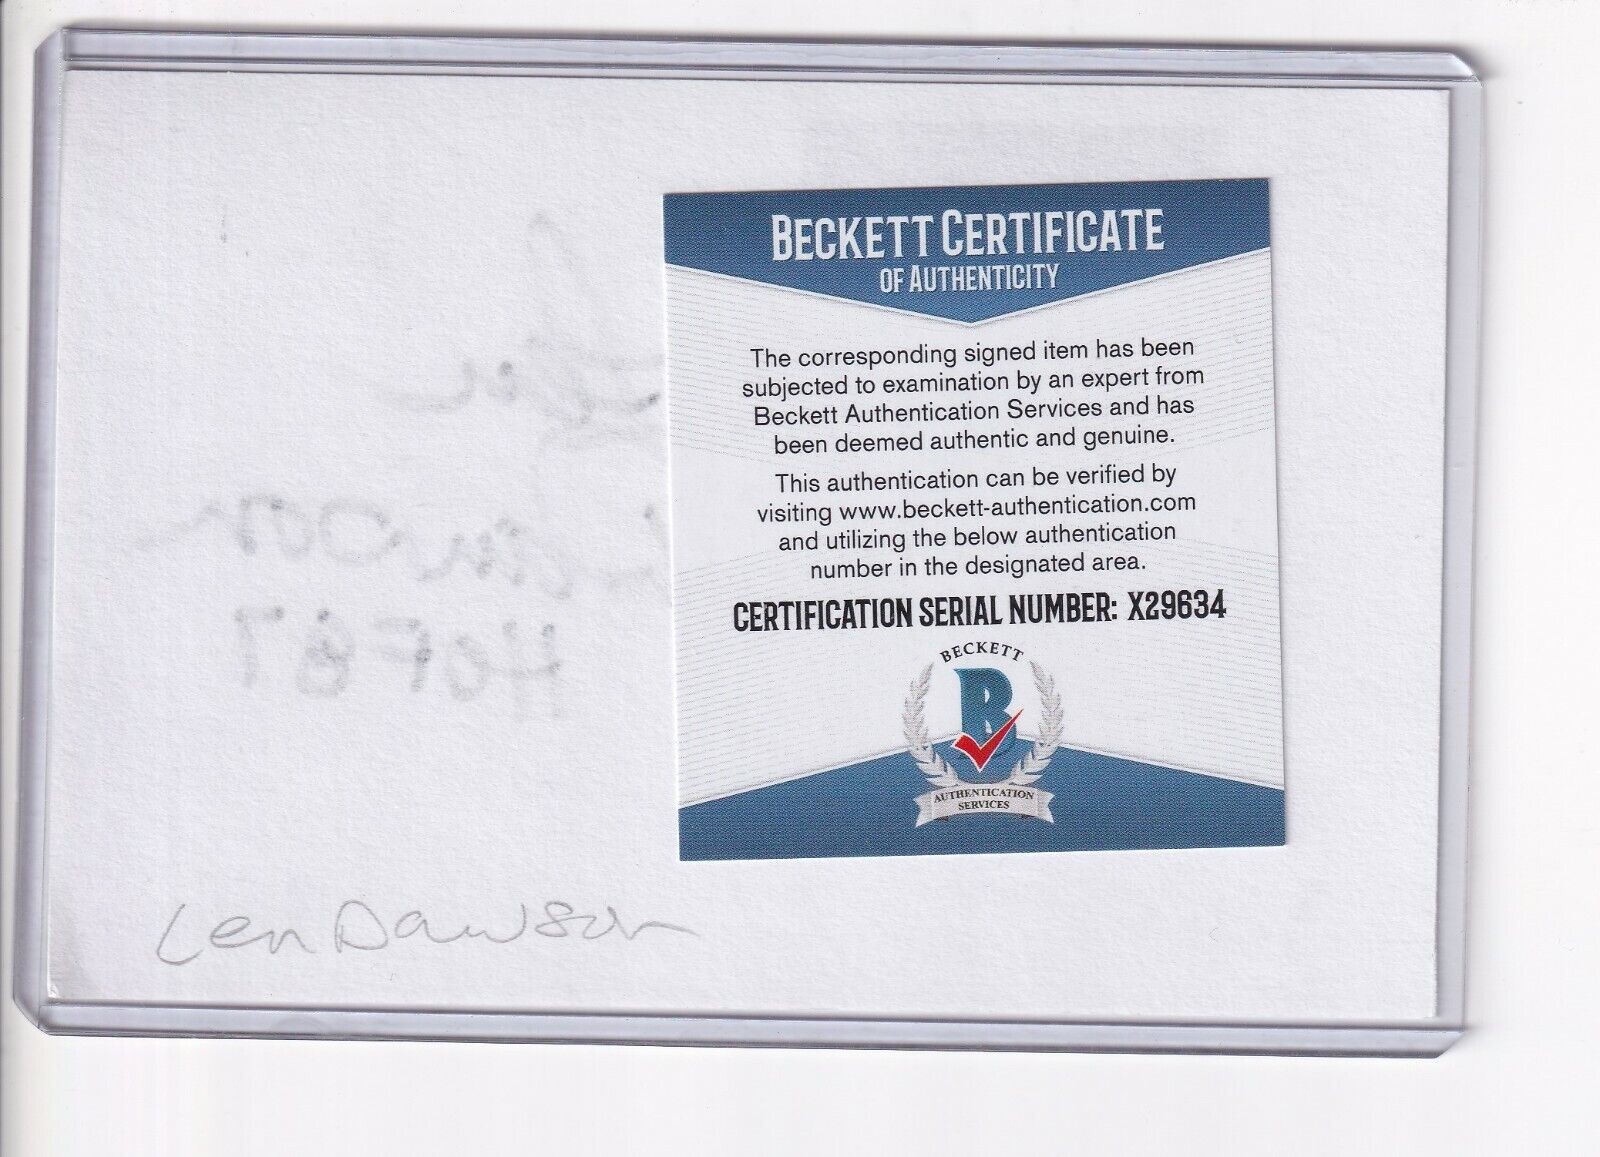 BECKETT CERTIFICATE
OF AUTHENTICITY
The corresponding signed item has been
subjected to examination by an expert from
Beckett Authentication Services and has
been deemed authentic and genuine.
This authentication can be verified by
visiting www.beckett-authentication.com
and utilizing the below authentication
number in the designated area.
CERTIFICATION SERIAL NUMBER: X29634
BECKETT
B
AUTHENTICATION
SERVICES
HOF 87
Len Dawson